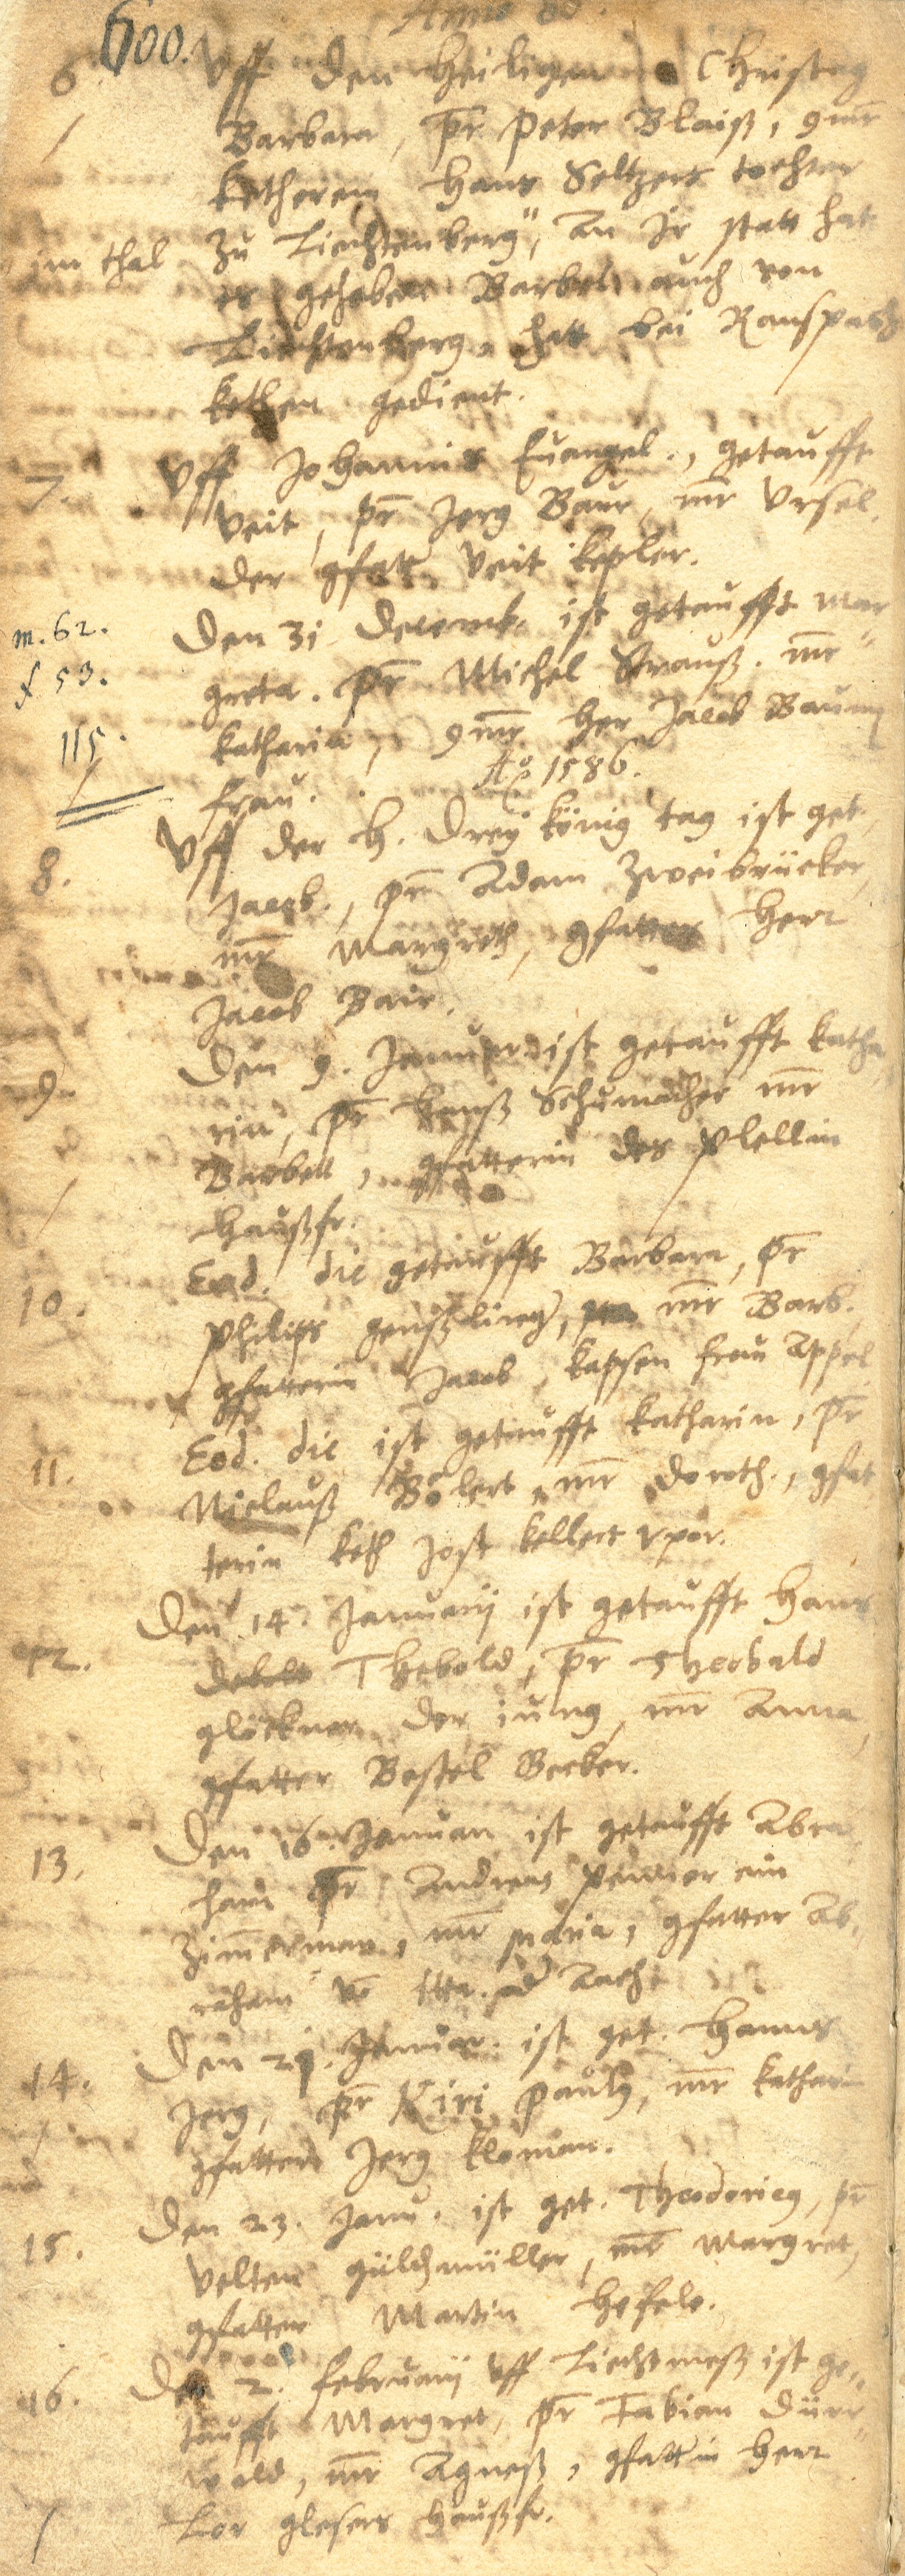 600.
Anno
6. Uff den heiligen Christag
Barbara, pr Peter Blaiß, gmr
Ketherein Hans Seltzers tochter
im thal zu Liechtenberg, An Ir statt hat
es gehoben Barbel auch von
Liechtenberg, hett bei Ranspach
kethen gedient.
7. Uff Johannis Euangel., getaufft
Veit, pr Jerg Baur, mr Ursel.
der gfatter Veit Kepler.
m. 62. Den 31 Decemb. ist getaufft Mar
f 53. greta. pr Michel Strauß. mr
115. Katharia, gmr her Jacob Baum
frau. Ao 1586.
8. Uff der H. Drey König tag ist get.
Jacob., pr Adam Zweibrücker,
mr Margreth, gfatter herr
Jacob Bair.
9. Den 9. Januar ist getaufft Katha
rin, pr Hanß Schumacher mr
Barbell, gfatterin des plellin
haußfr.
10. Eod. die getaufft Barbara, pr
Philips , mr Barb.
gfatterin Jacob Kapsen frau Appel
11. Eod. die ist getaufft Katharin, pr
Niclauß Bölert, mr Doroth., gfat
terin Keth Jost Kellers uxor.
12. Den 14. Januarij ist getaufft Hans
Thebold, pr Theobald
glöckner der iung, mr Anna,
gfatter Bastel Becker.
13. Den 16. Januari ist getaufft Abra
ham pr Andreas ein
Zimmerman, mr Maria, gfatter Ab
raham
14. Den 21. Januar. ist get. Hanns
Jerg, pr Kiri Pauly, mr Kathari
gfatter Jerg Kloman.
15. Den 23. Janu. ist get. Theodoricg, pr
Velten gülchmüller, mr Margret,
gfatter Martin Hefele.
16. Den 2. Februarij uff Liechtmeß ist ge
taufft Margret, pr Fabian Dürr
wald, mr Agneß, gfatterin herr
Lor glesers haußfr.